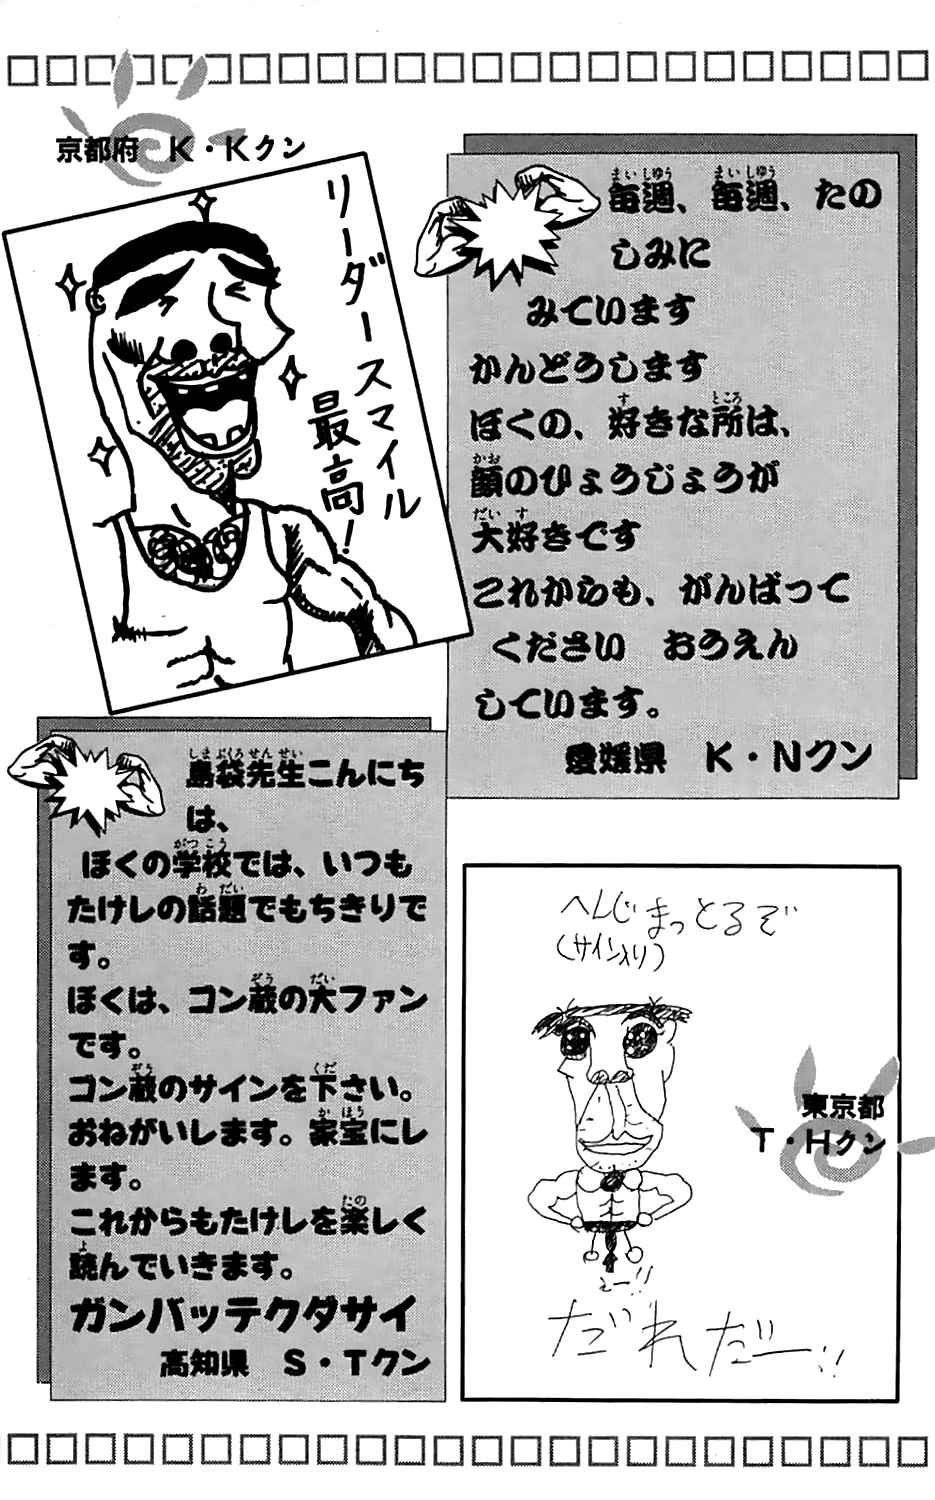 京都府 K・Kクン
リーダースマイル
最高!
毎週、毎週、たの
しみに
みています
かんどうします
ぼくの、好きな所は、
顔のひょうじょうが
大好きです
これからも、がんばって
ください おうえん
しています。
愛媛県 K・Nクン
島袋先生こんにち
は、
ぼくの学校では、いつも
たけしの話題でもちきりで
す。
ぼくは、ゴン蔵の大ファン
です。
ゴン蔵のサインを下さい。
おねがいします。家宝にし
ます。
これからもたけしを楽しく
読んでいきます。
ガンバッテクダサイ
高知県 S・Tクン
へんじまっとるぞ
(サイン入り)
東京都
T・Hクン
えー!!
だれだー!!